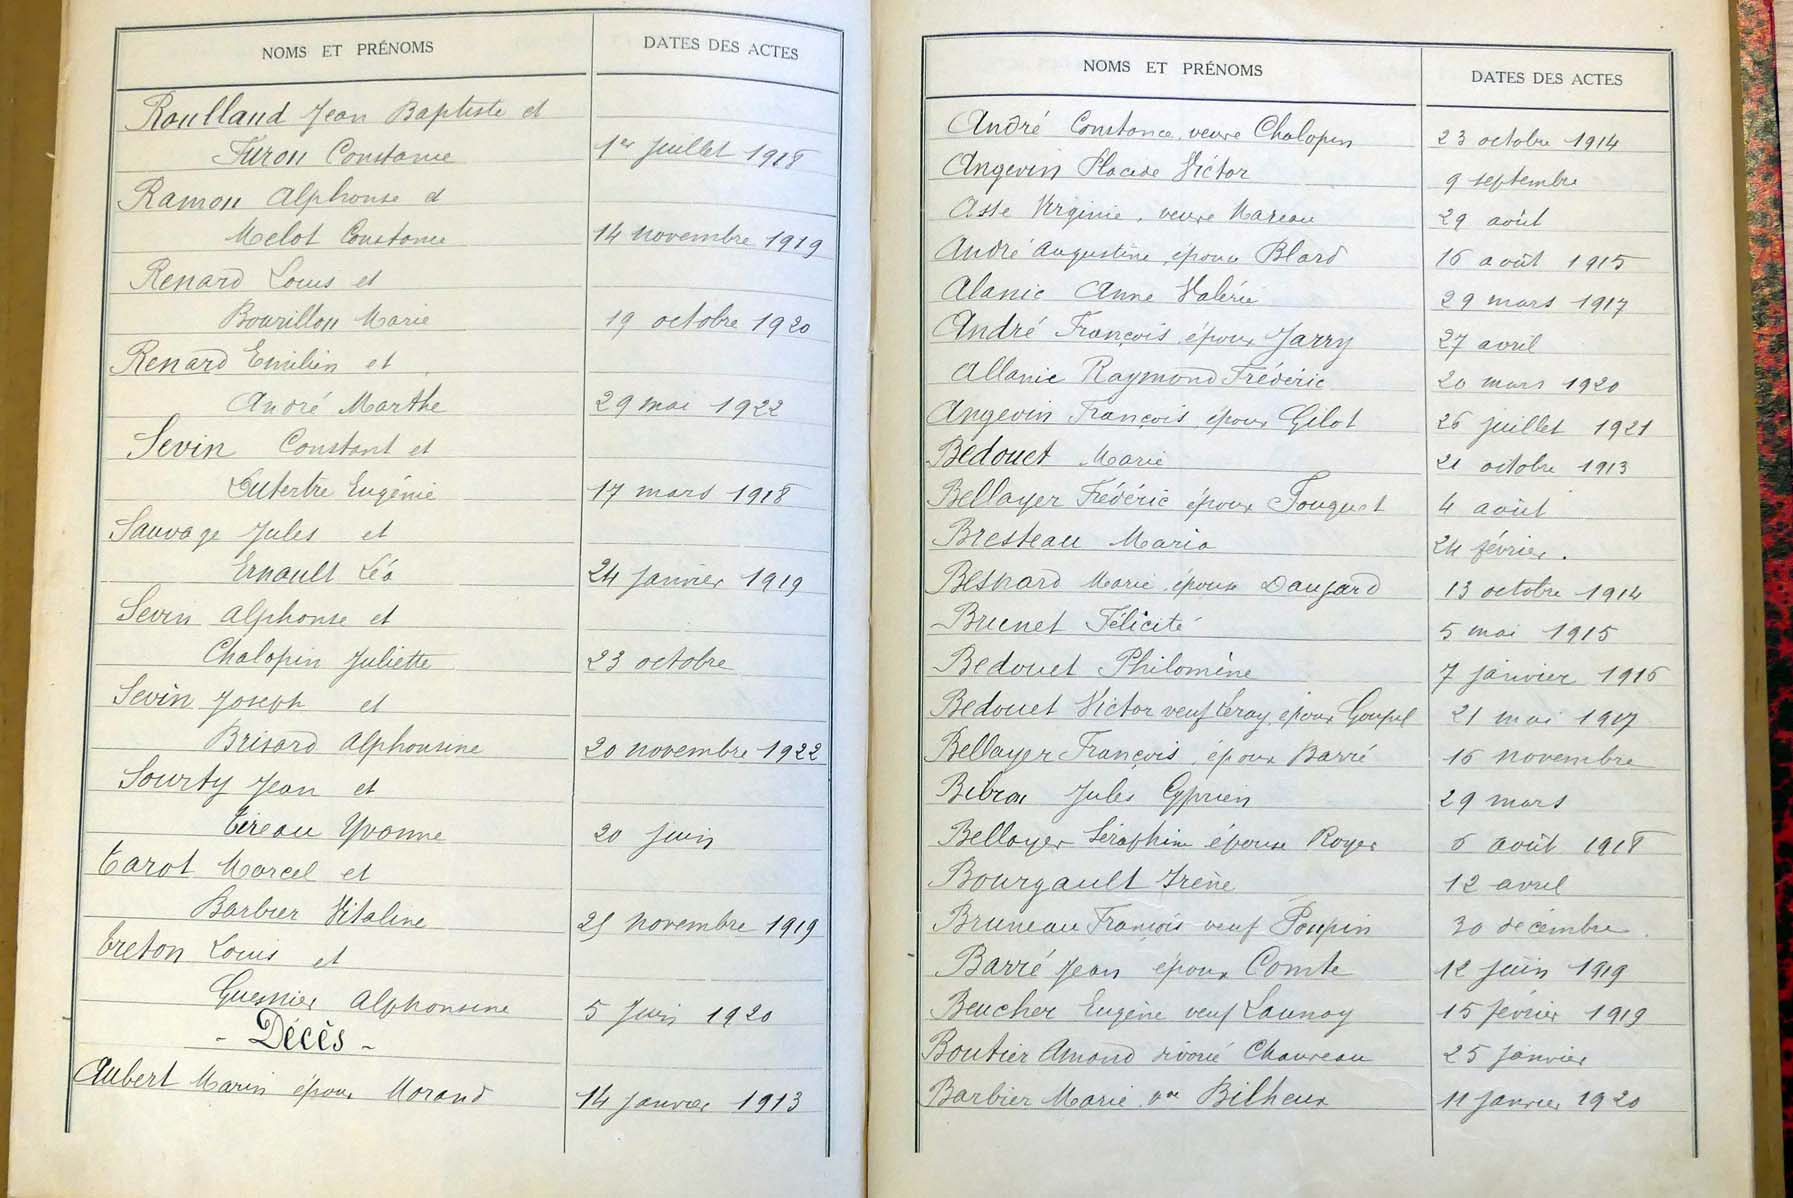 NOMS ET PRÉNOMS DATES DES ACTES
Roulland Jean Baptiste et
Furon Constance 1er Juillet 1918
Ramon Alphonse et
Melot Constance 14 novembre 1919
Renard Louis et
Bourillon Marie 19 octobre 1920
Renard Emilien et
André Marthe 29 mai 1922
Sevin Constant et
Lutertre Eugénie 17 mars 1918
Sauvage Jules et
Ernault Léa 24 janvier 1919
Sevin Alphonse et
Chalopin Juliette 23 octobre
Sevin Joseph et
Brisard Alphonsine 20 novembre 1922
Sourty Jean et
Tireau Yvonne 20 juin
Tarot Marcel et
Barbier Vitaline 25 novembre 1919
Treton Louis et
Guesnier Alphonsine 5 Juin 1920
- Décès -
Aubert Marin époux Morand 14 janvier 1913
NOMS ET PRÉNOMS DATES DES ACTES
André Constance, veuve Chalopin 23 octobre 1914
Angevin Placide Victor 9 septembre
Asse Virginie, veuve Mareau 29 août
André Augustine, épouse Blard 16 août 1915
Alanic Anne Valérie 29 mars 1917
André François, époux Jarry 27 avril
Allanic Raymond Frédéric 20 mars 1920
Angevin François, époux Gilot 26 juillet 1921
Bedouet Marie 21 octobre 1913
Bellayer Frédéric époux Fouquet 4 août
Bresteau Maria 24 février.
Besnard Marie, épouse Daugard 13 octobre 1914
Brunet Félicité 5 mai 1915
Bedouet Philomène 7 janvier 1916
Bedouet Victor veuf Leray, époux Goupil 21 mai 1917
Bellayer François, époux Barré 16 novembre
Bibron Jules Cyprien 29 mars
Bellayer Séraphine épouse Royer 6 août 1918
Bourgault Irène 12 avril
Bruneau François veuf Poupin 30 décembre.
Barré Jean époux Comte 12 juin 1919
Beucher Eugène veuf Launay 15 février 1919
Boutier Amand divorcé Chauveau 25 janvier
Barbier Marie, vve Bilheux 11 janvier 1920